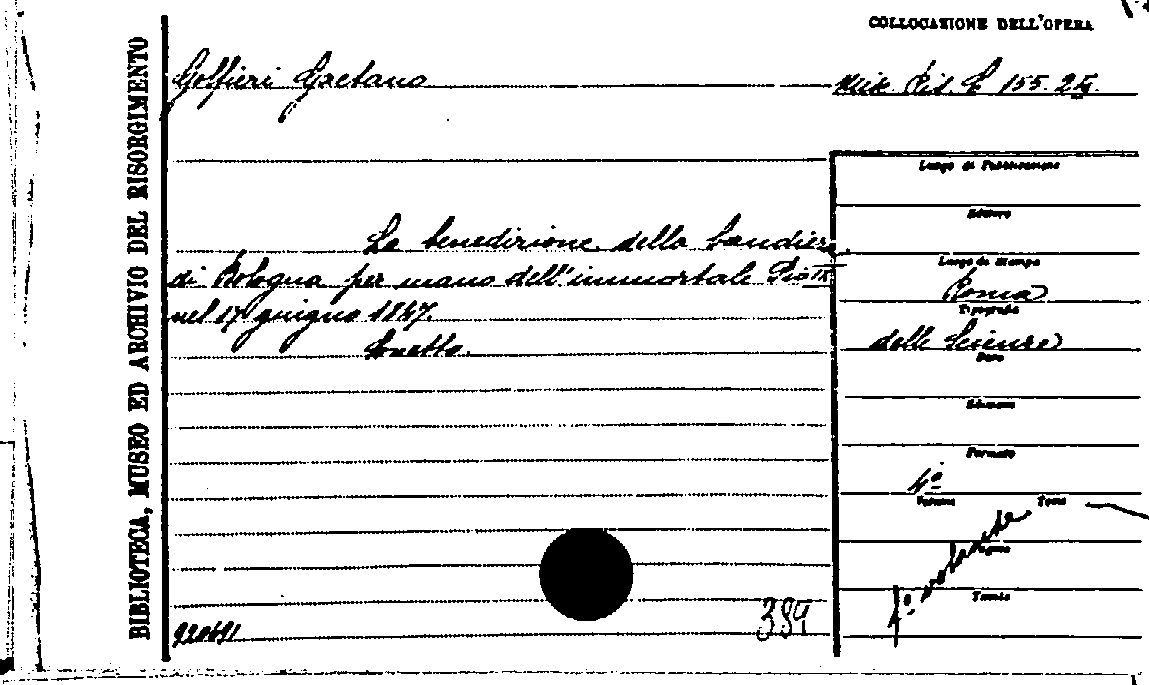 COLLOCAZIONE DELL'OPERA
BIBLIOTECA, MUSEO ED ARCHIVIO DEL RISORGIMENTO
Golfieri Gaetano
155.
Luogo di Pubblicazione
Editore
La benedizione della bandiera
di Bologna per mano dell'immortale Pio IX
nel 17 giugno 1847.
Sonetto.
Luogo di Stampa
Roma
Tipografia
delle Scienze
Data
Edizione
Formato
4º
Volume
Tomo
Pagine
Tavole
fº volante
384